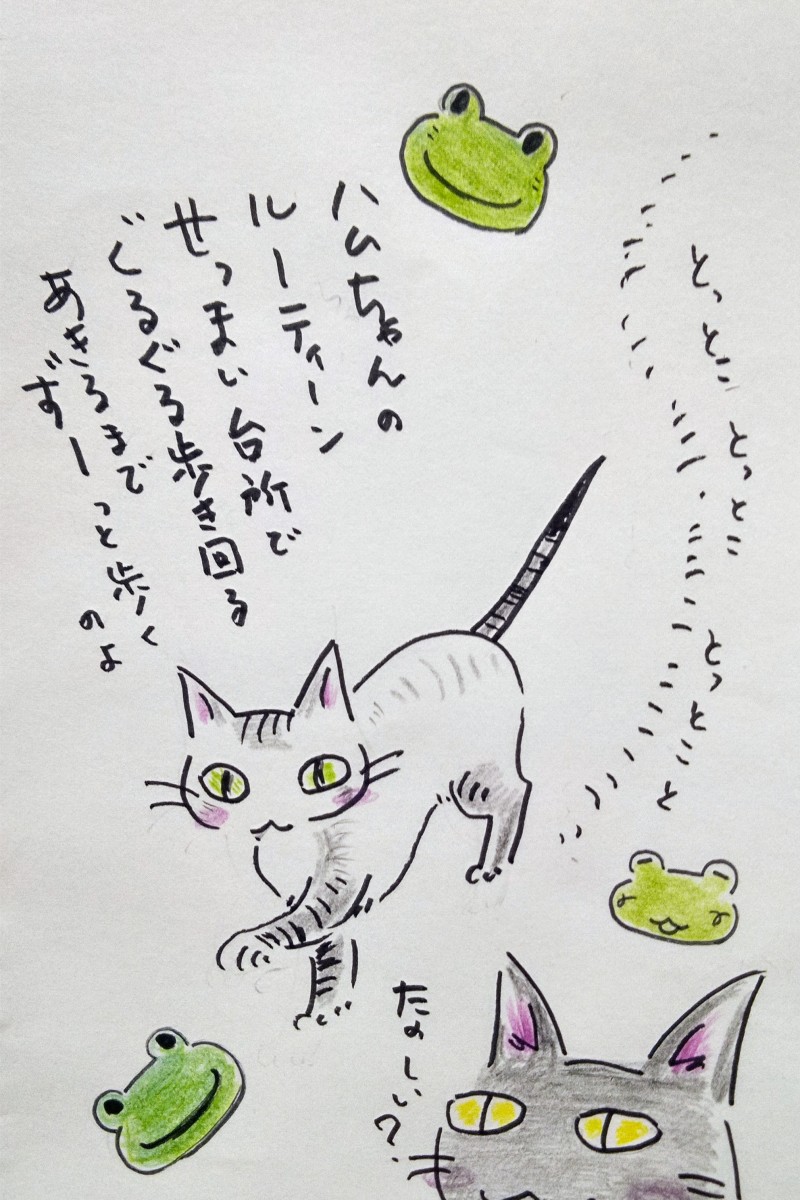 ハムちゃんの
ルーティーン
せっまい台所で
ぐるぐる歩き回る
あきるまで
ずーっと歩く
のよ
とっとこ
とっとこ
とっとこと
たのしい?